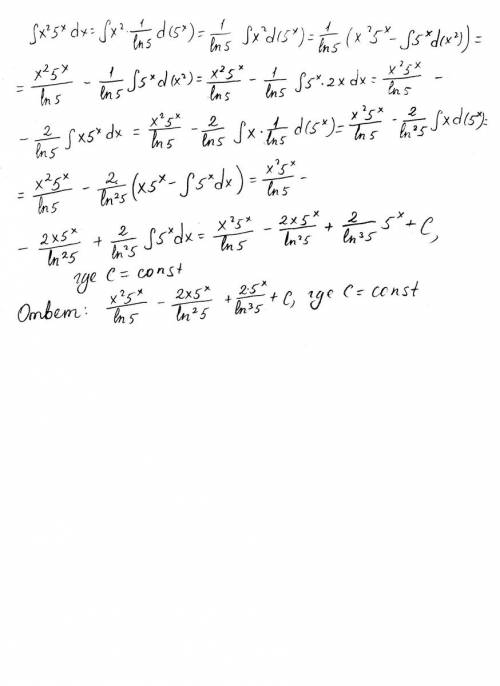 ∫x²5ˣdx = ∫x² · 1/ln5 d(5ˣ) = 1/ln5 ∫x²d(5ˣ) = 1/ln5 (x²5ˣ - ∫5ˣd(x²)) =
= x²5ˣ/ln5 - 1/ln5 ∫5ˣd(x²) = x²5ˣ/ln5 - 1/ln5 ∫5ˣ·2x dx = x²5ˣ/ln5 -
- 2/ln5 ∫x5ˣdx = x²5ˣ/ln5 - 2/ln5 ∫x · 1/ln5 d(5ˣ) = x²5ˣ/ln5 - 2/ln²5 ∫xd(5ˣ) =
= x²5ˣ/ln5 - 2/ln²5 (x5ˣ - ∫5ˣdx) = x²5ˣ/ln5 -
- 2x5ˣ/ln²5 + 2/ln²5 ∫5ˣdx = x²5ˣ/ln5 - 2x5ˣ/ln²5 + 2/ln³5 5ˣ + C,
где C = const
Ответ: x²5ˣ/ln5 - 2x5ˣ/ln²5 + 2·5ˣ/ln³5 + C, где C = const